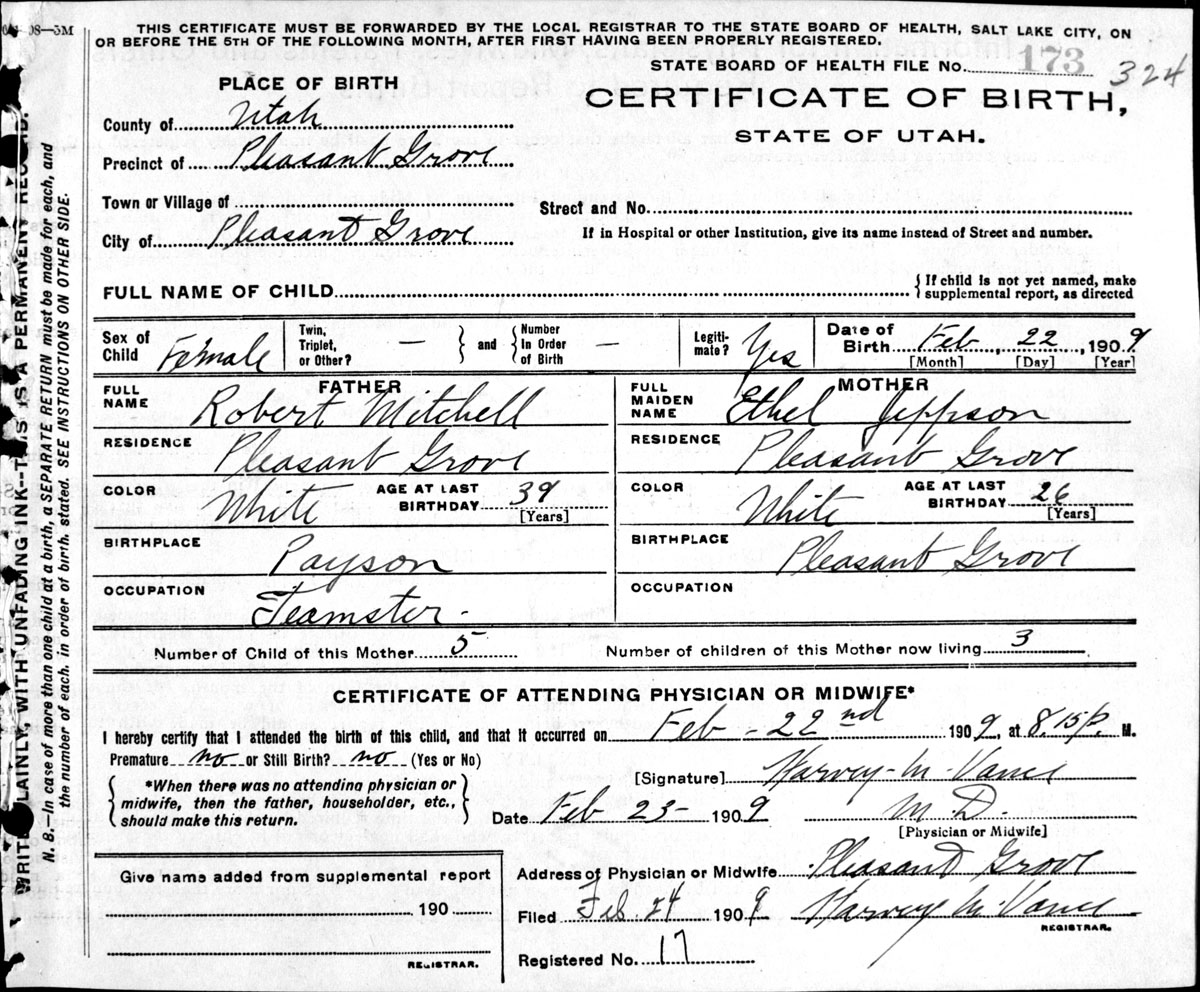 08—3M
THIS CERTIFICATE MUST BE FORWARDED BY THE LOCAL REGISTRAR TO THE STATE BOARD OF HEALTH, SALT LAKE CITY, ON
OR BEFORE THE 5TH OF THE FOLLOWING MONTH, AFTER FIRST HAVING BEEN PROPERLY REGISTERED.
STATE BOARD OF HEALTH FILE No. 173 324
PLACE OF BIRTH
CERTIFICATE OF BIRTH,
STATE OF UTAH.
County of Utah
Precinct of Pleasant Grove
Town or Village of
Street and No.
City of Pleasant Grove
If in Hospital or other Institution, give its name instead of Street and number.
FULL NAME OF CHILD { If child is not yet named, make supplemental report, as directed
Sex of Child Female Twin, Triplet, or Other? — } and { Number In Order of Birth — Legiti-mate? Yes Date of Birth Feb, 22, 1909
[Month] [Day] [Year]
FATHER
FULL NAME Robert Mitchell
MOTHER
FULL MAIDEN NAME Ethel Jeppson
RESIDENCE Pleasant Grove
RESIDENCE Pleasant Grove
COLOR White AGE AT LAST BIRTHDAY 39 [Years]
COLOR White AGE AT LAST BIRTHDAY 26 [Years]
BIRTHPLACE Payson
BIRTHPLACE Pleasant Grove
OCCUPATION Teamster-
OCCUPATION
Number of Child of this Mother 5 Number of children of this Mother now living 3
CERTIFICATE OF ATTENDING PHYSICIAN OR MIDWIFE*
I hereby certify that I attended the birth of this child, and that it occurred on Feb - 22nd 1909, at 8.15 p. M.
Premature no or Still Birth? no (Yes or No)
{ *When there was no attending physician or midwife, then the father, householder, etc., should make this return. }
[Signature] Harvey M. Vance
Date Feb 23- 1909 M.D.
[Physician or Midwife]
Address of Physician or Midwife Pleasant Grove
Filed Feb. 24 1909 Harvey M. Vance
REGISTRAR.
Registered No. 17
Give name added from supplemental report
190
REGISTRAR.
WRITE PLAINLY WITH UNFADING INK--THIS IS A PERMANENT RECORD.
N. B.—In case of more than one child at a birth, a SEPARATE RETURN must be made for each, and
the number of each, in order of birth, stated. SEE INSTRUCTIONS ON OTHER SIDE.